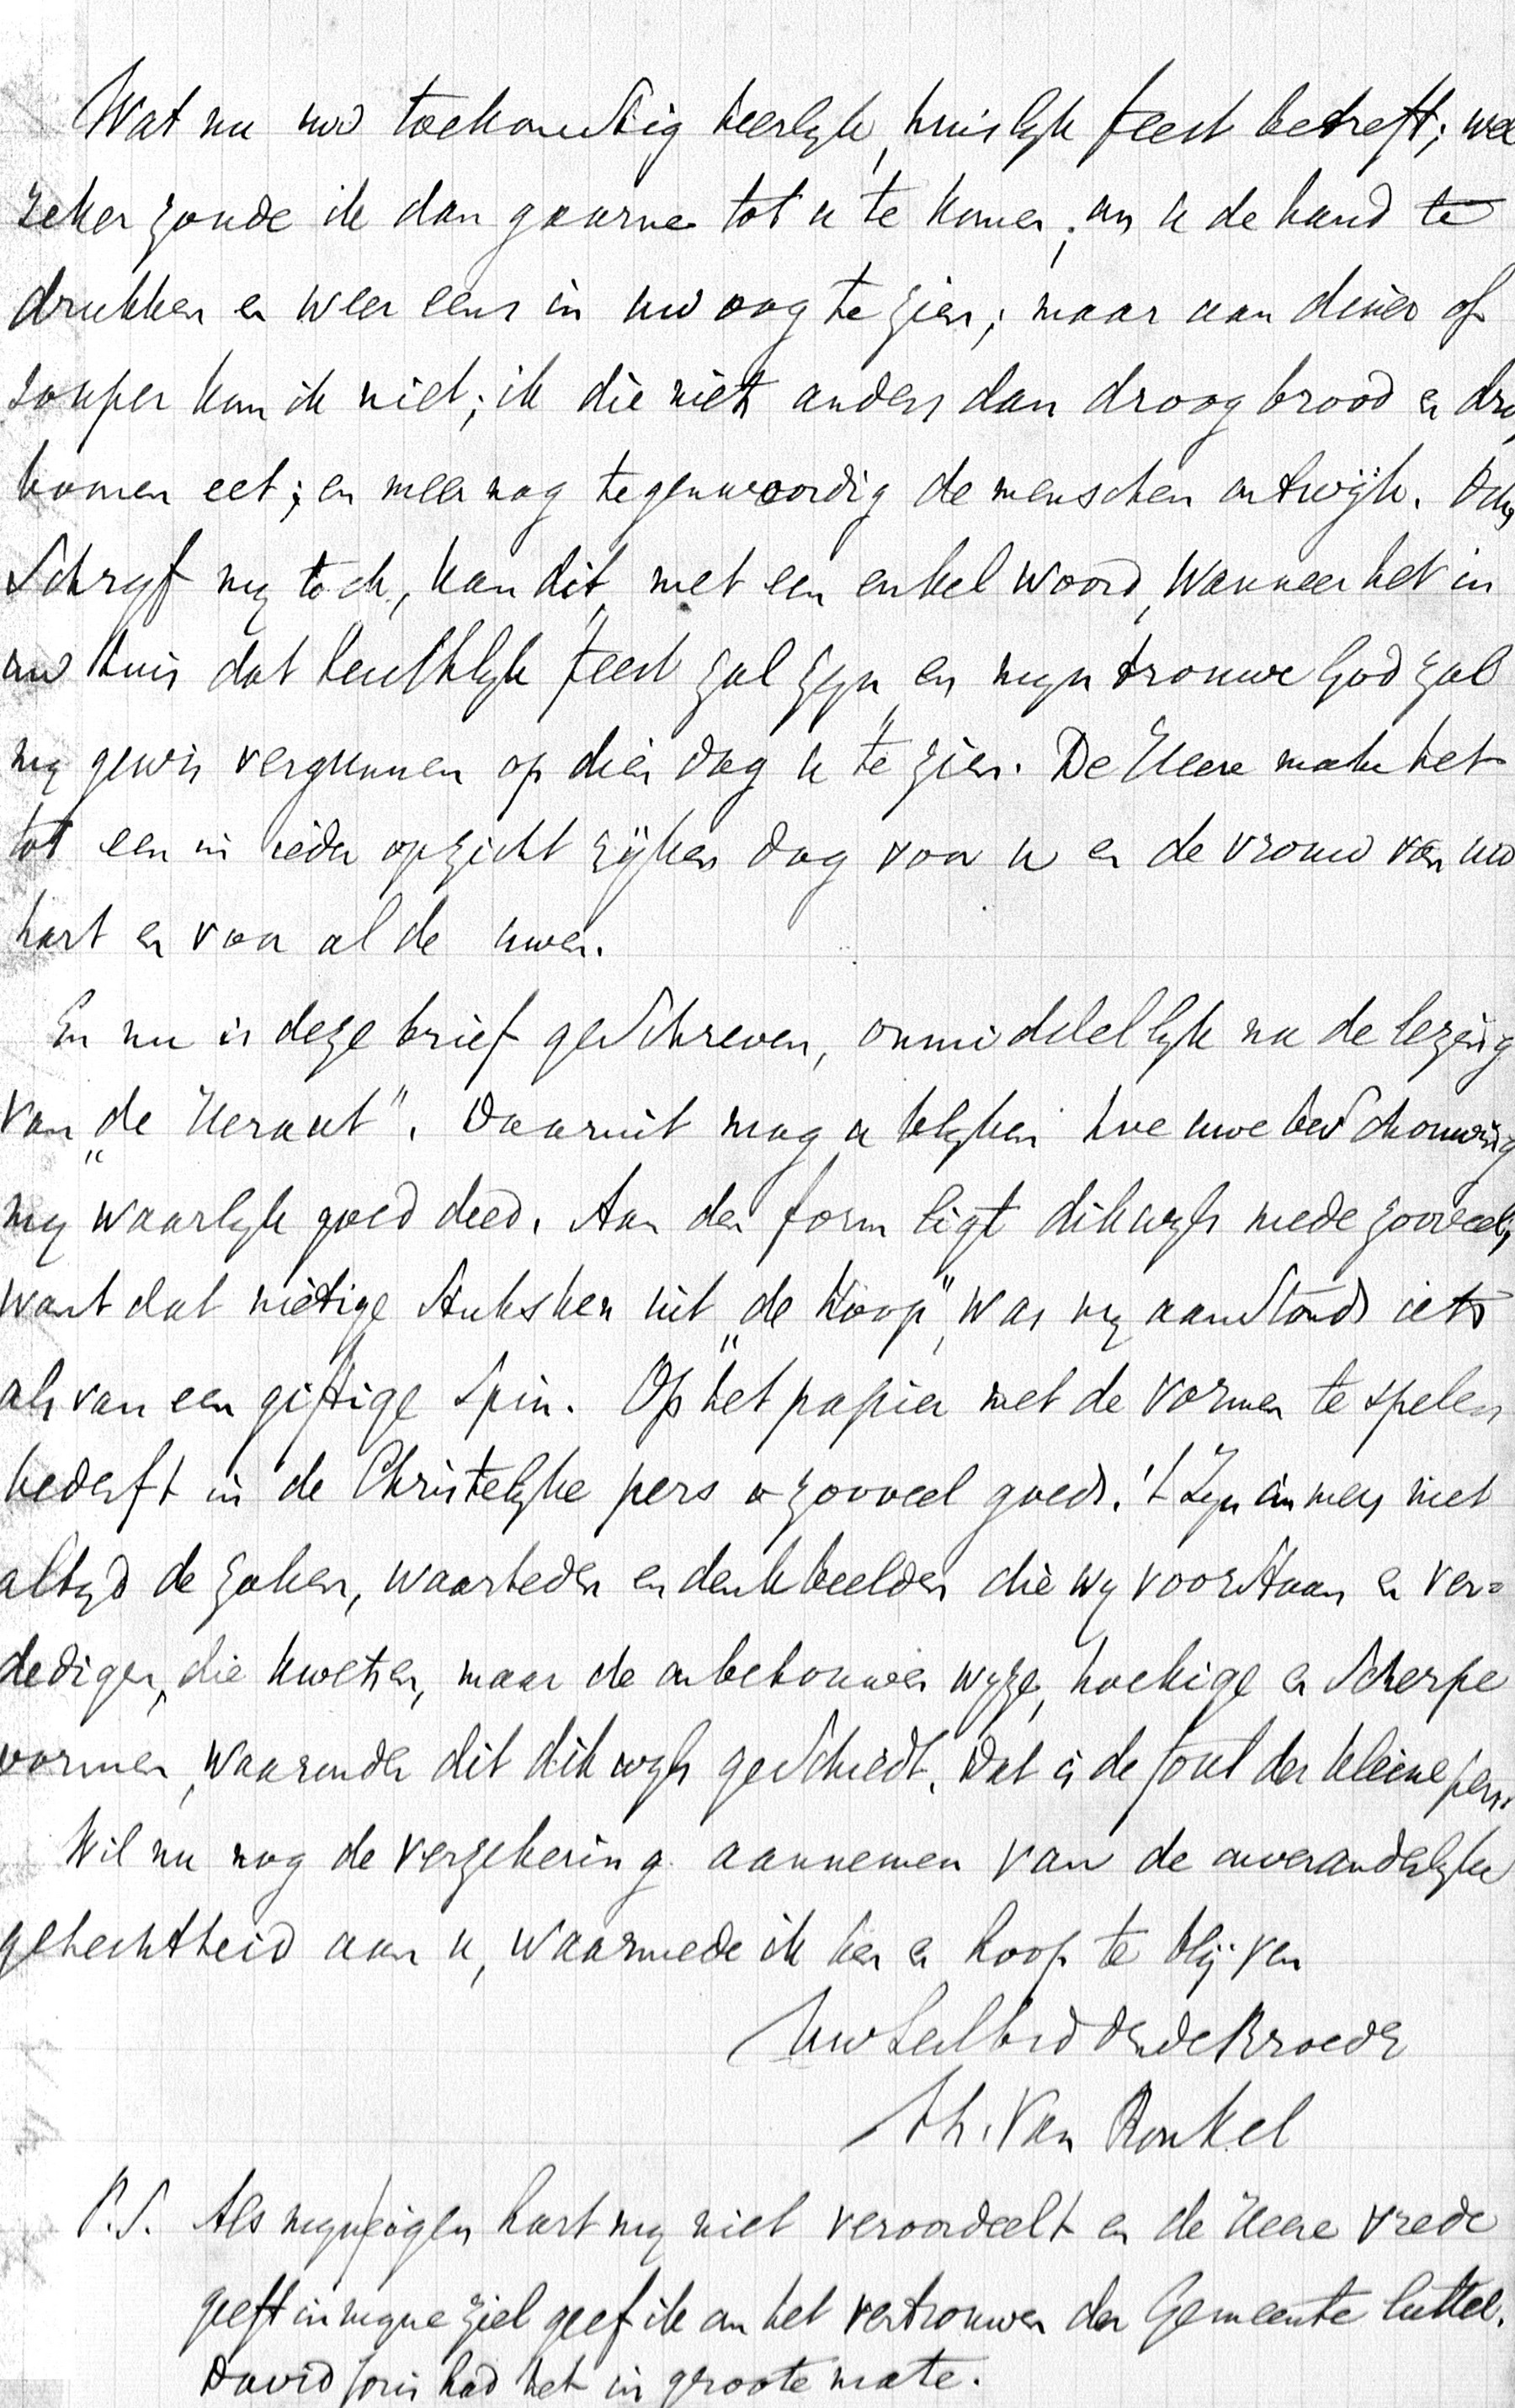 Wat nu uw toekomstig heerlyk, huislyk feest betreft; wel
zeker zoude ik dan gaarne tot u te komen; om u de hand te
drukken en weer eens in uw oog te zien; maar aan diner of
souper kan ik niet; ik die niets anders dan droog brood en dro
boonen eet; en meer nog tegenwoordig de menschen ontwijk. Och,
Schryf my toch, kan dit, met een enkel woord, wanneer het in
uw huis dat heuchlyk feest zal zyn, en myn trouwe God zal
my gewis vergunnen op dien dag u te zien. De Heere make het
tot een in ieder opzicht rijken dag voor u en de vrouw van uw
hart en voor al de uwen.
En nu is deze brief geschreven, onmiddellyk na de lezing
van „de Heraut". Daaruit mag u blyken hoe uwe beschouwing
my waarlyk goed deed. Aan den form ligt dikwyls mede zooveel,
want dat nietige stuksken uit „de Hoop", was my aanstonds iets
als van een giftige spin. Op het papier met de vormen te spelen
bederft in de Christelyke pers o zooveel goeds. 't Zyn immers niet
altyd de zaken, waarheden en denkbeelden die wy voorstaan en ver=
dedigen, die kwetsen, maar de onbehouwen wyze, hoekige en scherpe
vormen, waaronder dit dikwyls geschiedt. Dat is de fout der kleine pers.
Wil nu nog de verzekering aannemen van de onveranderlyke
gehechtheid aan u, waarmede ik ben en hoop te blijven
Uw heilbiddende Broeder
Ph. Van Ronkel
P.S. Als myn eigen hart my niet veroordeelt en de Heere vrede
geeft in myne ziel geef ik om het vertrouwen der Gemeente luttel.
David Joris had het in groote mate.